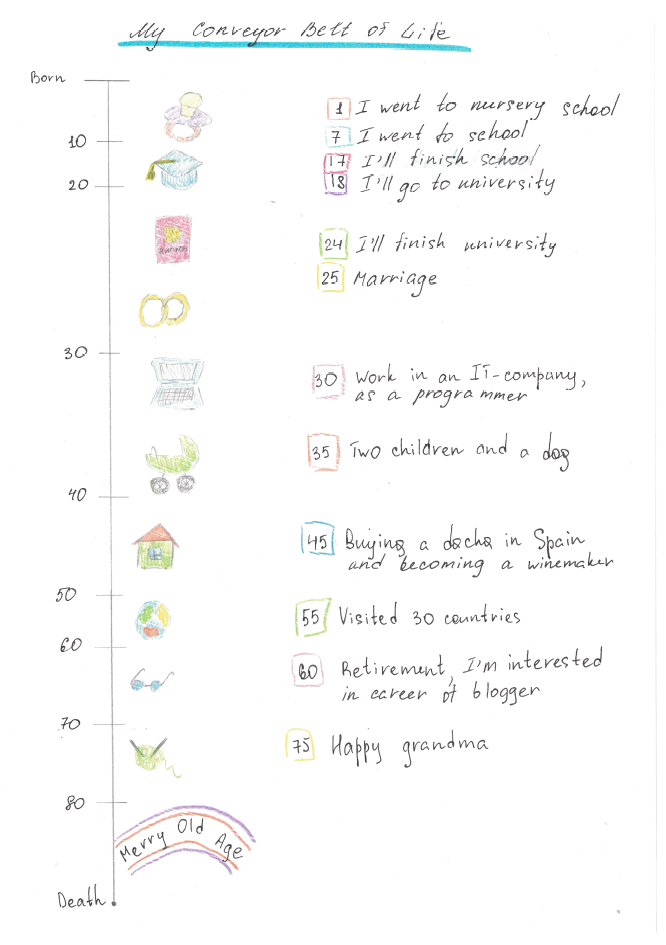 My Conveyor Belt of Life
Born
1 I went to nursery school
10
7 I went to school
17 I'll finish school
20
18 I'll go to university
24 I'll finish university
25 Marriage
30
30 Work in an IT-company,
as a programmer
35 Two children and a dog
40
45 Buying a dacha in Spain
and becoming a winemaker
50
55 Visited 30 countries
60
60 Retirement, I'm interested
in career of blogger
70
75 Happy grandma
80
Merry Old Age
Death